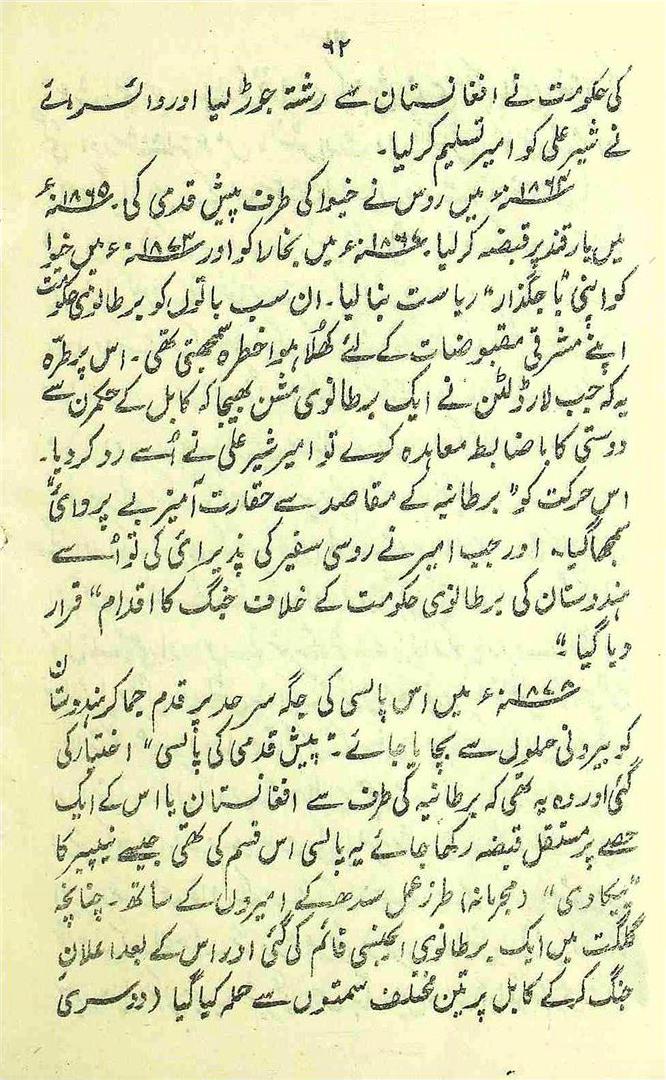 ۶۲
کی حکومت نے افغانستان سے رشتہ جوڑ لیا اور وائسرائے
نے شیر علی کو امیر تسلیم کر لیا۔
۱۸۶۳ء میں روس نے خیوا کی طرف پیش قدمی کی۔ ۱۸۶۵ء
میں یارقند پر قبضہ کر لیا۔ ۱۸۶۷ء میں بخارا کو اور ۱۸۷۳ء میں خوا
کو اپنی "باجگذار" ریاست بنا لیا۔ ان سب باتوں کو برطانوی حکومت
اپنے مشرقی مقبوضات کے لئے کھلا ہوا خطرہ سمجھتی تھی۔ اس پر طرّہ
یہ کہ جب لارڈ لٹن نے ایک برطانوی مشن بھیجا کہ کابل کے حکمرن سے
دوستی کا باضابط معاہدہ کرے تو امیر شیر علی نے اُسے رد کر دیا۔
اس حرکت کو "برطانیہ کے مقاصد سے حقارت آمیز بے پروائی"
سمجھا گیا۔ اور جب امیر نے روسی سفیر کی پذیرائی کی تو اُسے
ہندوستان کی برطانوی حکومت کے خلاف جنگ کا اقدام" قرار
دیا گیا"
۱۸۷۹ء میں اس پالسی کی جگہ سرحد پر قدم جما کر ہندوستان
کو بیرونی حملوں سے بچایا جائے۔ "پیش قدمی کی پالسی" اختیار کی
گئی اور وہ یہ تھی کہ برطانیہ کی طرف سے افغانستان یا اس کے ایک
حصے پر مستقل قبضہ رکھا جائے یہ پالسی اس قسم کی تھی جیسے نیپیر کا
"پیکاوی" (مجرمانہ) طرز عمل سندھ کے امیروں کے ساتھ۔ چنانچہ
گلگت میں ایک برطانوی ایجنسی قائم کی گئی اور اس کے بعد اعلان
جنگ کر کے کابل پر تین مختلف سمتوں سے حملہ کیا گیا (دوسری